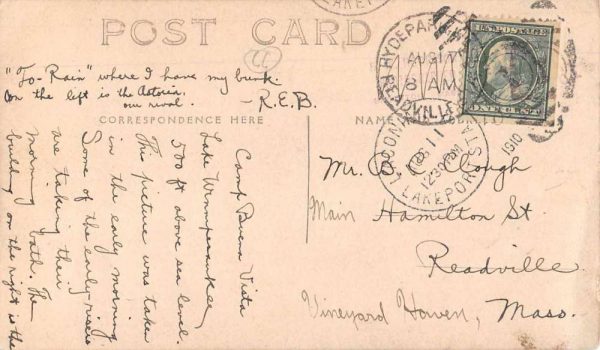 POST CARD
CORRESPONDENCE HERE
Camp Buena Vista
Lake Winnipesaukee,
500 ft above sea level.
This picture was taken
in the early morning.
Some of the early-risers
are taking their
morning bath. The
building on the right is the
"To-Rain" where I have my bunk.
On the left is the Astoria,
our rival.
- R.E.B.
NAME
HYDE PARK
AUG 17
8 AM
READVILLE
1910
LAKEPORT STA
12 30 PM
U.S. POSTAGE
ONE CENT
Mr. B. Clough
Main Hamilton St
Readville
Vineyard Haven, Mass.